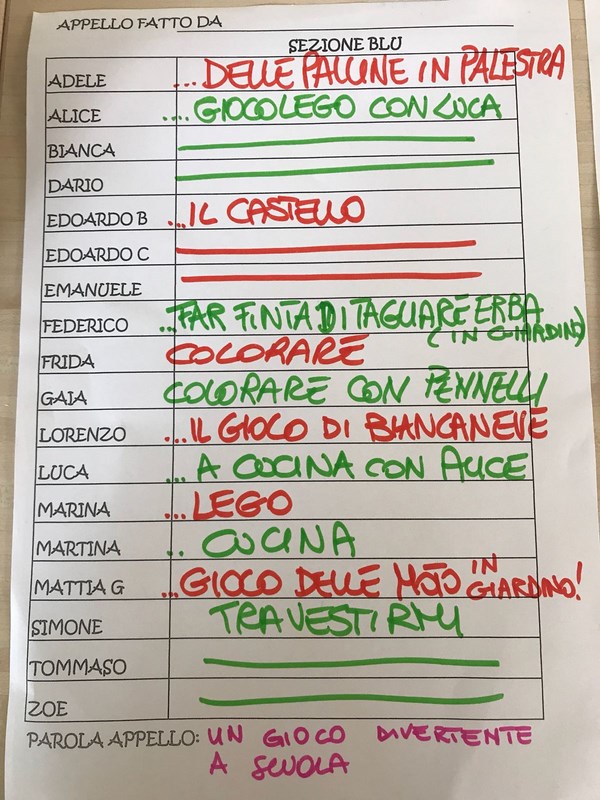 APPELLO FATTO DA
SEZIONE BLU
ADELE ...DELLE PALLINE IN PALESTRA
ALICE ....GIOCO LEGO CON LUCA
BIANCA
DARIO
EDOARDO B ...IL CASTELLO
EDOARDO C
EMANUELE
FEDERICO ...FAR FINTA DI TAGLIARE ERBA
(IN GIARDINO)
FRIDA COLORARE
GAIA COLORARE CON PENNELLI
LORENZO ...IL GIOCO DI BIANCANEVE
LUCA ... A CUCINA CON ALICE
MARINA ...LEGO
MARTINA .. CUCINA
MATTIA G ...GIOCO DELLE MOTO IN GIARDINO!
SIMONE TRAVESTIRMI
TOMMASO
ZOE
PAROLA APPELLO: UN GIOCO DIVERTENTE
A SCUOLA